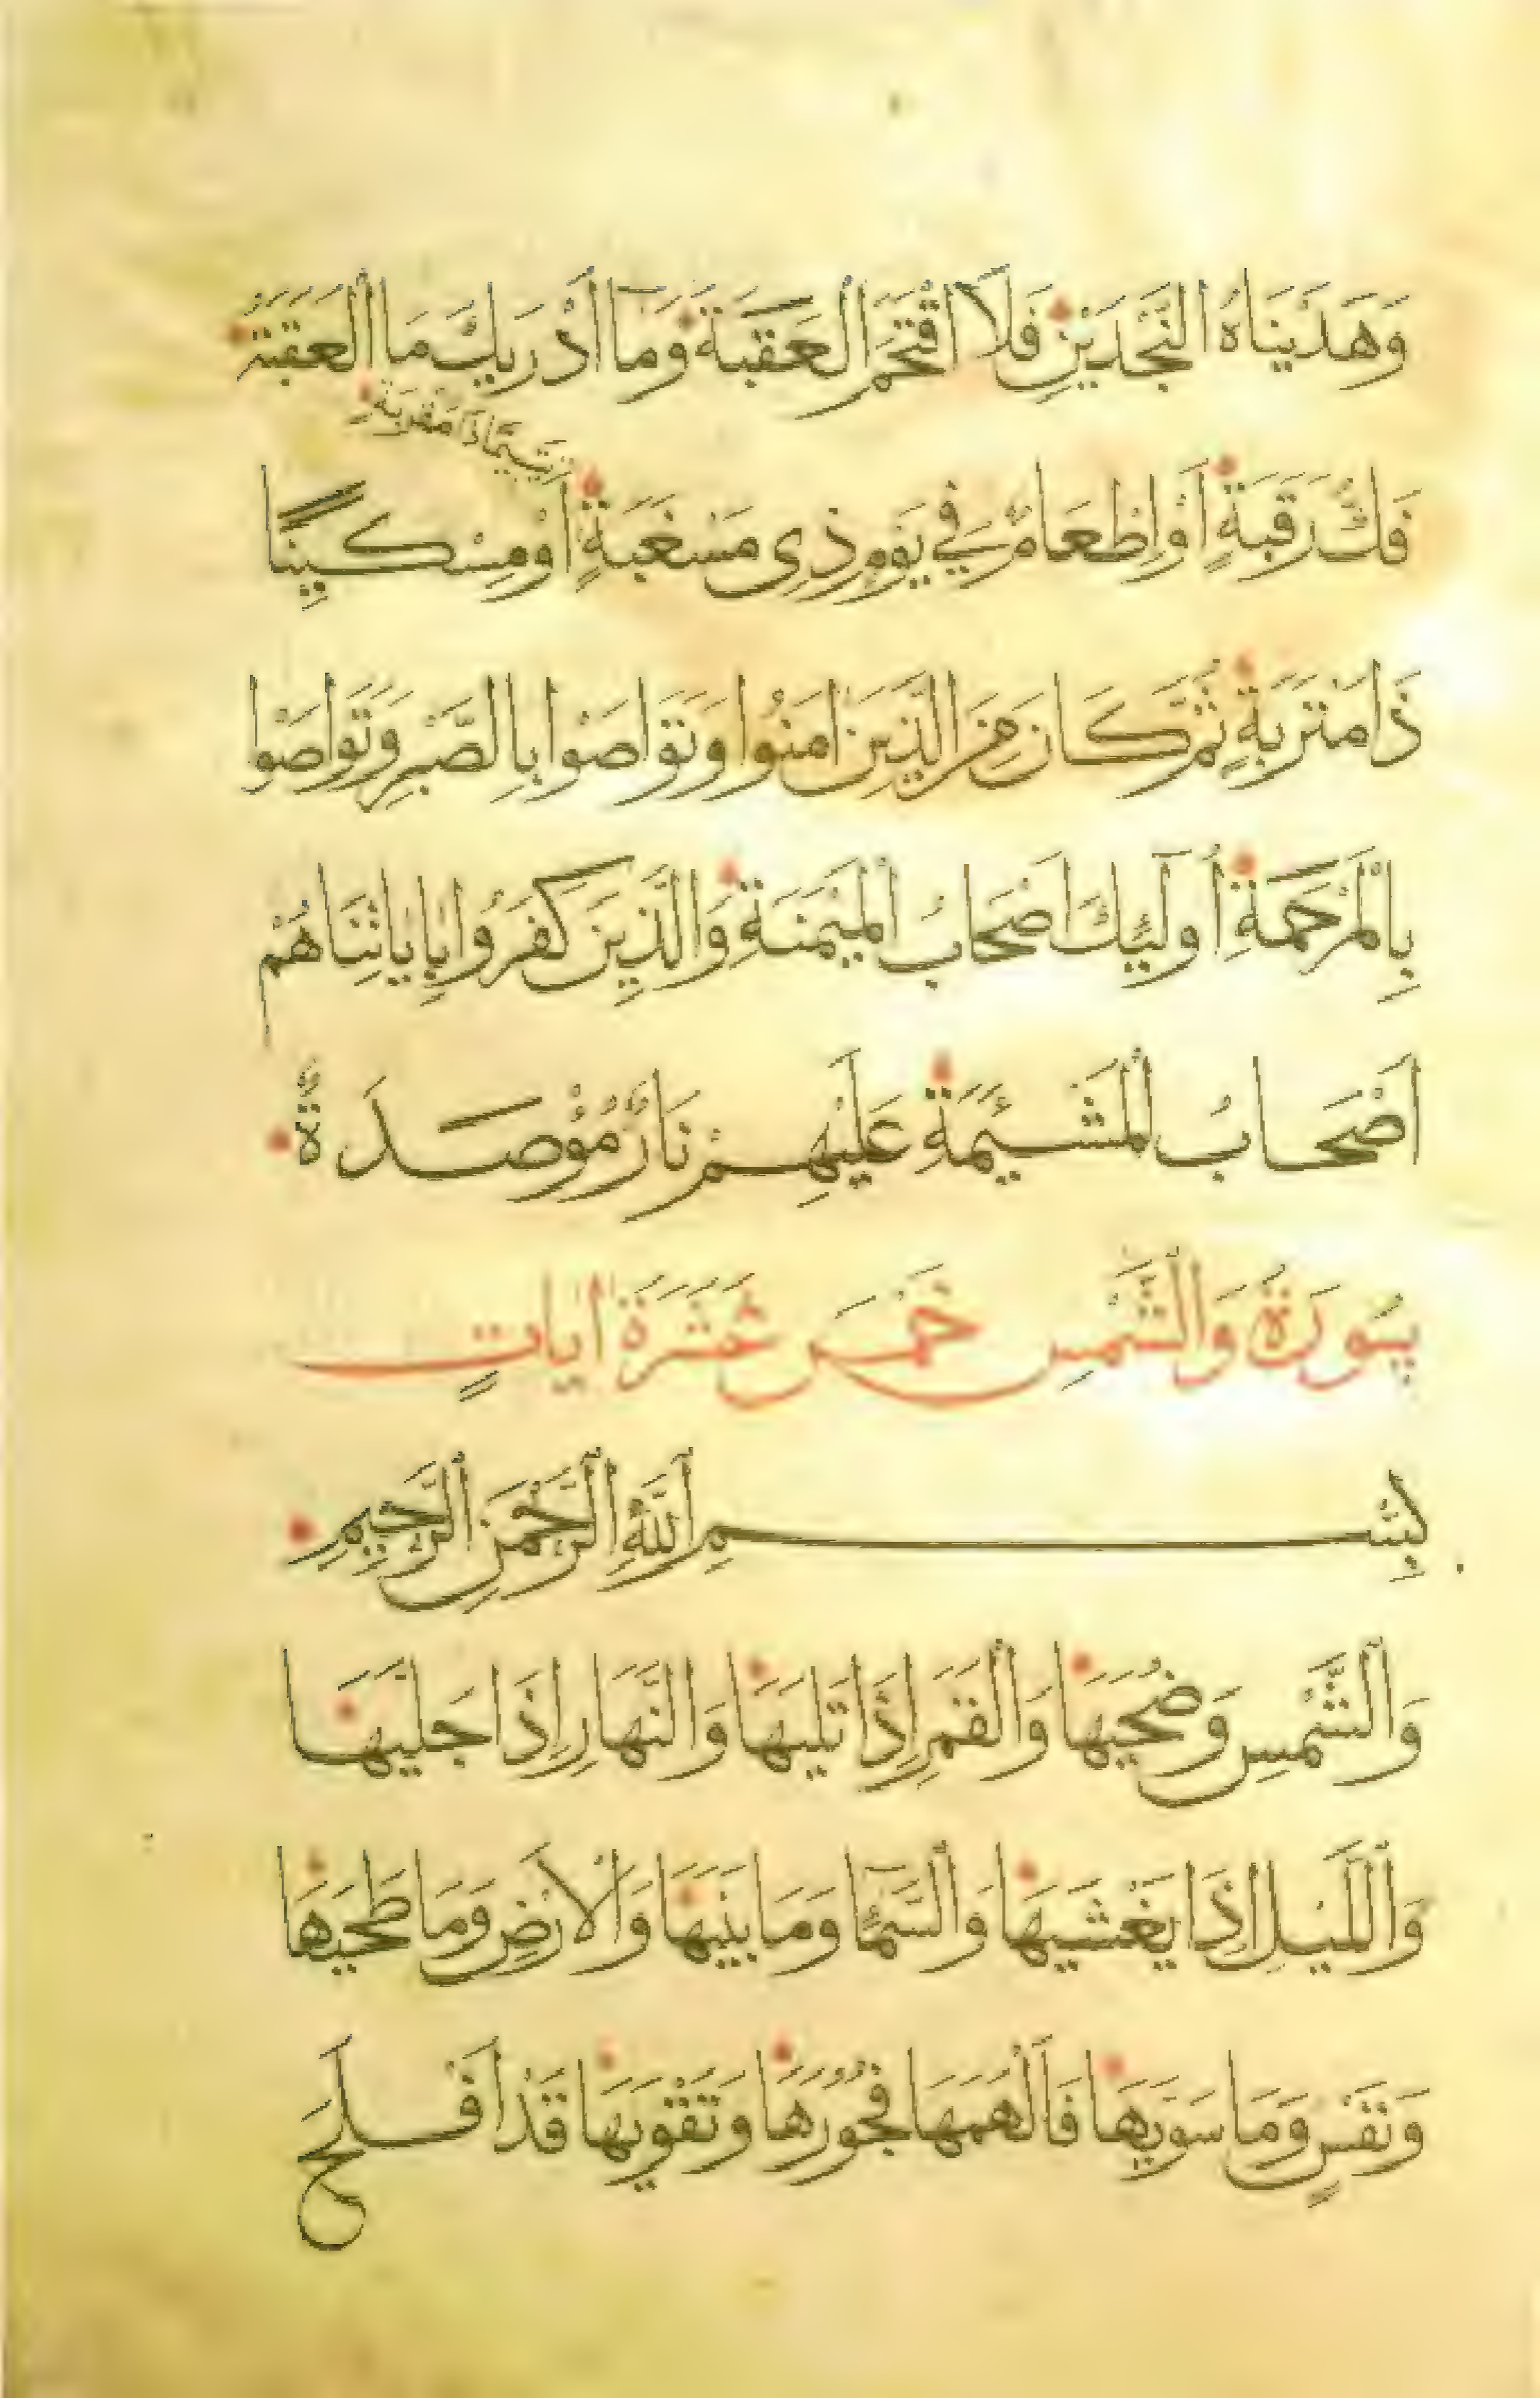 وَهَدَيْنَاهُ النَّجْدَيْنِ فَلَا اقْتَحَمَ الْعَقَبَةَ وَمَا أَدْرَيكَ مَا الْعَقَبَةُ
يَتِيمًا ذَا مَقْرَبَةٍ
فَكُّ رَقَبَةٍ أَوْ إِطْعَامٌ فِي يَوْمٍ ذِي مَسْغَبَةٍ أَوْ مِسْكِينًا
ذَا مَتْرَبَةٍ ثُمَّ كَانَ مِنَ الَّذِينَ آمَنُوا وَتَوَاصَوْا بِالصَّبْرِ وَتَوَاصَوْا
بِالْمَرْحَمَةِ أُولَئِكَ أَصْحَابُ الْمَيْمَنَةِ وَالَّذِينَ كَفَرُوا بِآيَاتِنَا هُمْ
أَصْحَابُ الْمَشْئَمَةِ عَلَيْهِمْ نَارٌ مُؤْصَدَةٌ
سُورَةُ وَالشَّمْسِ خَمْسَ عَشَرَةَ آيَاتٍ
بِسْمِ اللَّهِ الرَّحْمَنِ الرَّحِيمِ
وَالشَّمْسِ وَضُحَيهَا وَالْقَمَرِ إِذَا تَلَيهَا وَالنَّهَارِ إِذَا جَلَّيهَا
وَاللَّيْلِ إِذَا يَغْشَيهَا وَالسَّمَاءِ وَمَا بَنَيهَا وَالْأَرْضِ وَمَا طَحَيهَا
وَنَفْسٍ وَمَا سَوَّيهَا فَأَلْهَمَهَا فُجُورَهَا وَتَقْوَيهَا قَدْ أَفْلَحَ